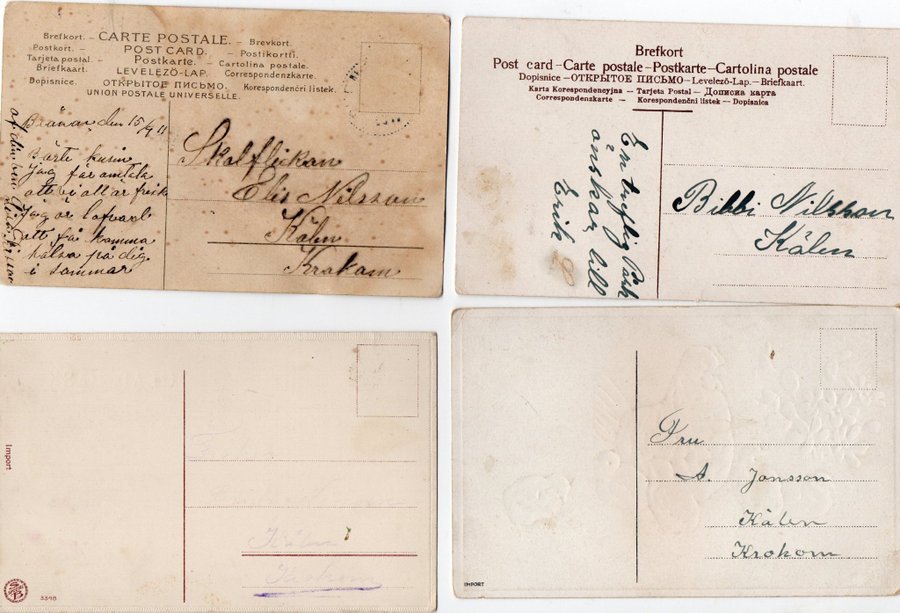 Brefkort. – CARTE POSTALE. – Brevkort.
Postkort. – POST CARD. – Postikortti.
Tarjeta postal. – Postkarte. – Cartolina postale.
Briefkaart. LEVELEZŐ-LAP. Correspondenzkarte.
Dopisnice. – ОТКРЫТОЕ ПИСЬМО. – Korespondenčni listek.
UNION POSTALE UNIVERSELLE.
den 15/9 11
Bäste kusin
Jag får
att vi allar frisk
Jag är
att få komma
hälsa på dig
i sommar
af din
Elis Nilsson
Kälen
Krokom
Brefkort
Post card – Carte postale – Postkarte – Cartolina postale
Dopisnice – ОТКРЫТОЕ ПИСЬМО – Levelező-Lap. – Briefkaart.
Karta Korespondencyjna – Tarjeta Postal – Дописна карта
Correspondenzkarte – Korespondenčni listek – Dopisnica
En treflig Påsk
önskas till
Erik
Bibbi Nilsson
Kälen
Import
3398
Kälen
Fru
A. Jonsson
Kälen
Krokom
IMPORT